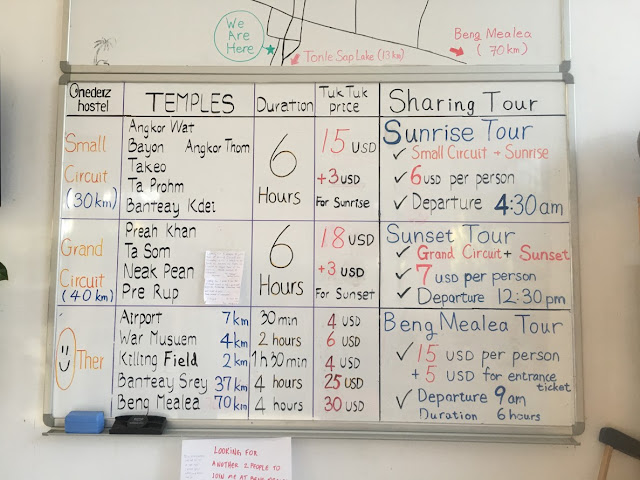 We
Are
Here
Tonle Sap Lake (13km)
Beng Mealea
(70km)
Onederz
hostel
TEMPLES
Duration
Tuk Tuk
price
Sharing Tour
Small
Circuit
(30km)
Angkor Wat
Bayon Angkor Thom
Takeo
Ta Prohm
Banteay Kdei
6
Hours
15 USD
+3 USD
For Sunrise
Sunrise Tour
✓ Small Circuit + Sunrise
✓ 6 USD per person
✓ Departure 4:30am
Grand
Circuit
(40km)
Preah Khan
Ta Som
Neak Pean
Pre Rup
6
Hours
18 USD
+3 USD
For Sunset
Sunset Tour
✓ Grand Circuit + Sunset
✓ 7 USD per person
✓ Departure 12:30pm
OTher
Airport 7km 30min 4 USD
War Musuem 4km 2 hours 6 USD
Killing Field 2km 1h 30min 4 USD
Banteay Srey 37km 4 hours 25 USD
Beng Mealea 70km 4 hours 30 USD
Beng Mealea Tour
✓ 15 USD per person
+ 5 USD for entrance
ticket
✓ Departure 9am
Duration 6 hours
LOOKING FOR
ANOTHER 2 PEOPLE TO
JOIN ME AT